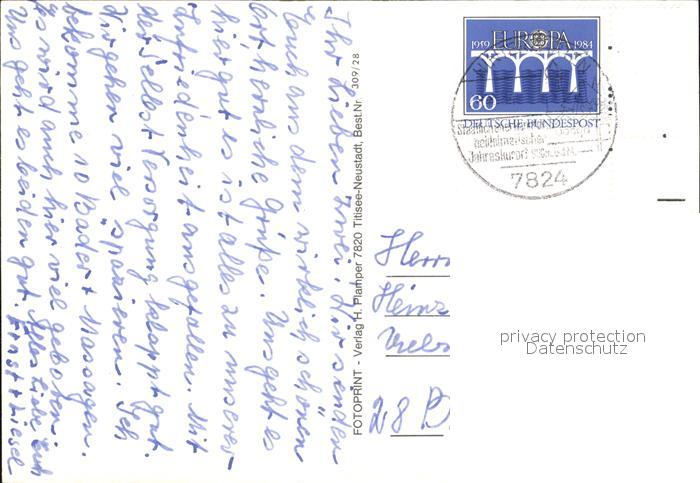 Ihr Lieben Zwei. Wir senden
Euch aus dem wirklich schönen
Ort herzliche Grüße. Uns geht es
hier gut es ist alles zu unserer
Zufriedenheit ausgefallen. Mit
der Selbst Versorgung klappt gut.
Wir gehen viel spazieren. Ich
bekomme 10 Bäder + Massagen.
Es wird auch hier viel geboten.
Uns geht es beiden gut. Alles Liebe Euch
Ernst + Liesel
FOTOPRINT - Verlag H. Plamper 7820 Titisee-Neustadt, Best.Nr. 309/28
1959 EUROPA 1984
60
DEUTSCHE BUNDESPOST
heilklimatischer
Jahreskurort
7824
Herrn
Heinz
28 B
privacy protection
Datenschutz